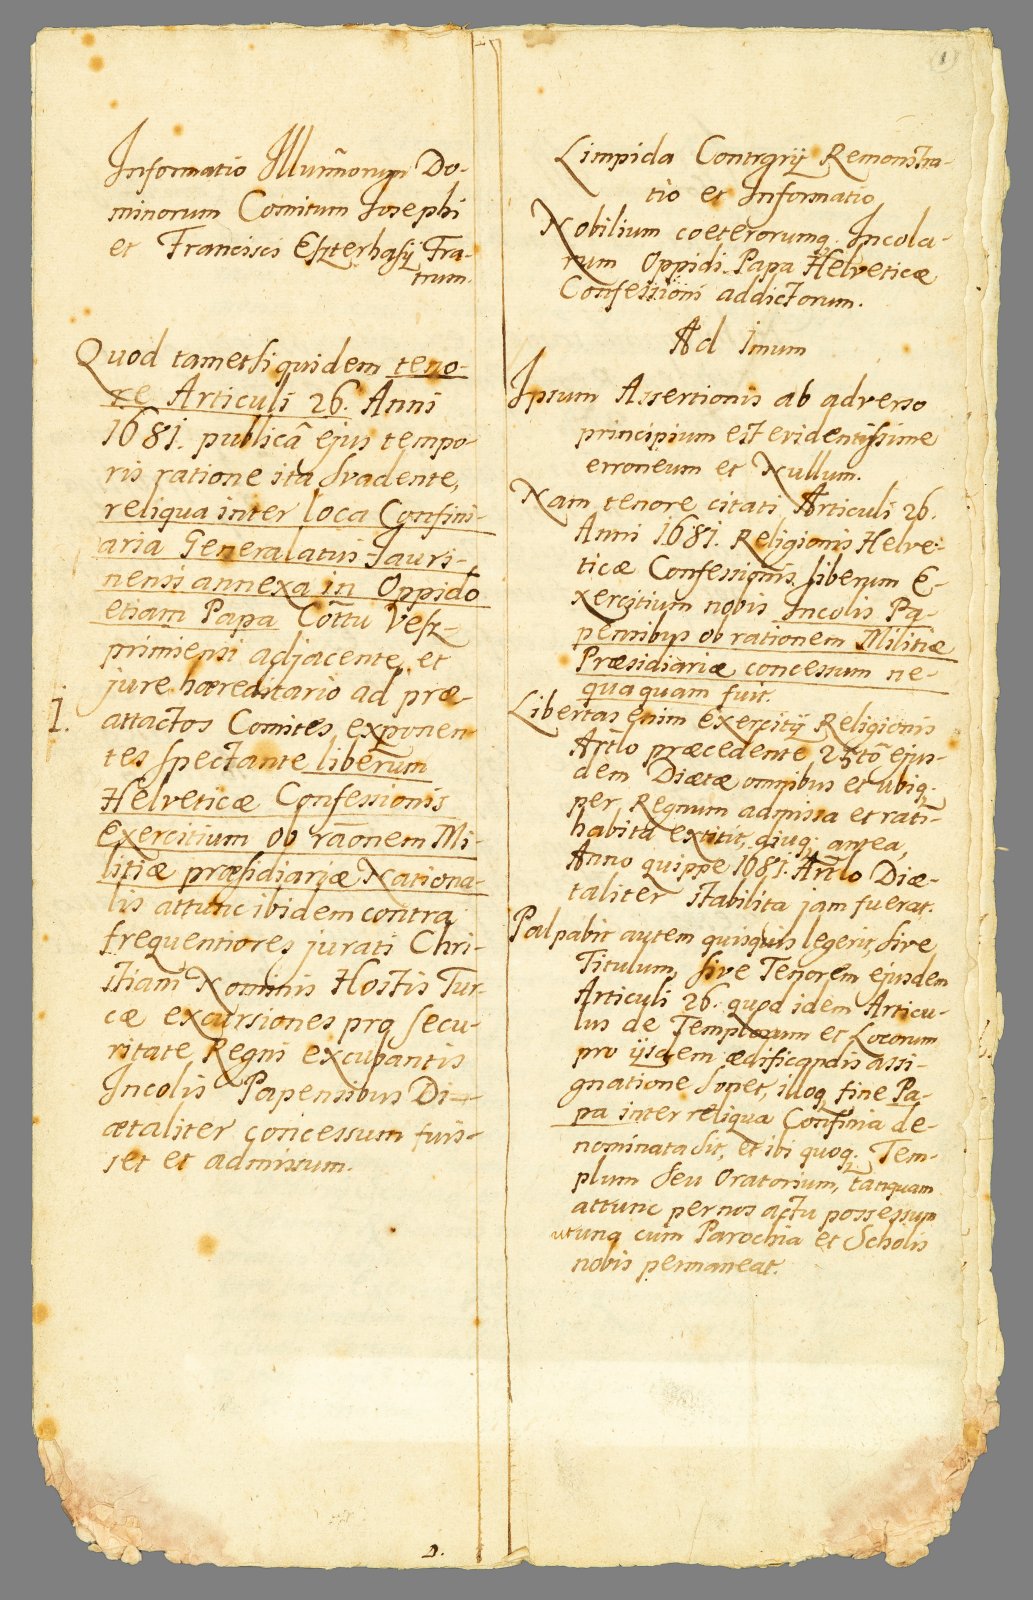 Informatio Illurm̃orum Do-
minorum Comitum Josephi
et Francisci Eszterhasÿ Fra-
trum.
Quod tametsi quidem teno-
re Articuli 26. Anni
1681. publicâ ejus tempo-
ris ratione ita svadente,
reliqua inter loca Confini-
aria Generalatui Jauri-
nensi annexa in Oppido
etiam Papa Cottu Vesz-
primiensi adjacente, et
jure hæreditario ad præ-
1. attactos Comites, exponen-
tes spectante liberum
Helveticæ Confessionis
Exercitium ob rãonem Mi-
litiæ præsidiariæ Nationa-
lis attunc ibidem contra
frequentiores jurati Chri-
stiani Nominis Hostis Tur-
cæ excursiones pro secu-
ritate Regni excubantis
Incolis Papensibus Di-
ætaliter concessum fuis-
set et admissum.
1.
1
Limpida Contrarÿ Remonstra-
tio et Informatio
Nobilium coeterorumq Incola-
rum Oppidi Papa Helveticæ
Confessioni addictorum.
Ad 1mum
Ipsum Assertionis ab adverso
principium est evidentissime
erroneum et Nullum.
Nam tenore citati Articuli 26.
Anni 1681. Religionis Helve-
ticæ Confessionis liberum E-
xercitium nobis Incolis Pa-
pensibus ob rationem Militiæ
Præsidiariæ concessum ne-
quaquam fuit.
Libertas enim exercitÿ Religionis
Artlo præcedente 25tô ejus-
dem Diætæ omnibus et ubiq.
per Regnum admissa et rati-
habita extitit, diuq; antea,
Anno quippe 1681. Artlo Diæ-
taliter stabilita jam fuerat.
Palpabit autem quisquis legerit, sive
Titulum, sive Tenorem ejusdem
Articuli 26. quod idem Articu-
lus de Templorum et Locorum
pro ÿsdem ædificandis assi-
gnatione sonet, illoq fine Pa-
pa inter reliqua Confinia de-
nominata sit, et ibi quoq. Tem-
plum seu Oratorium, tanquam
attunc per nos actu possessum
ut una cum Parochia et Scholis
nobis permaneat.